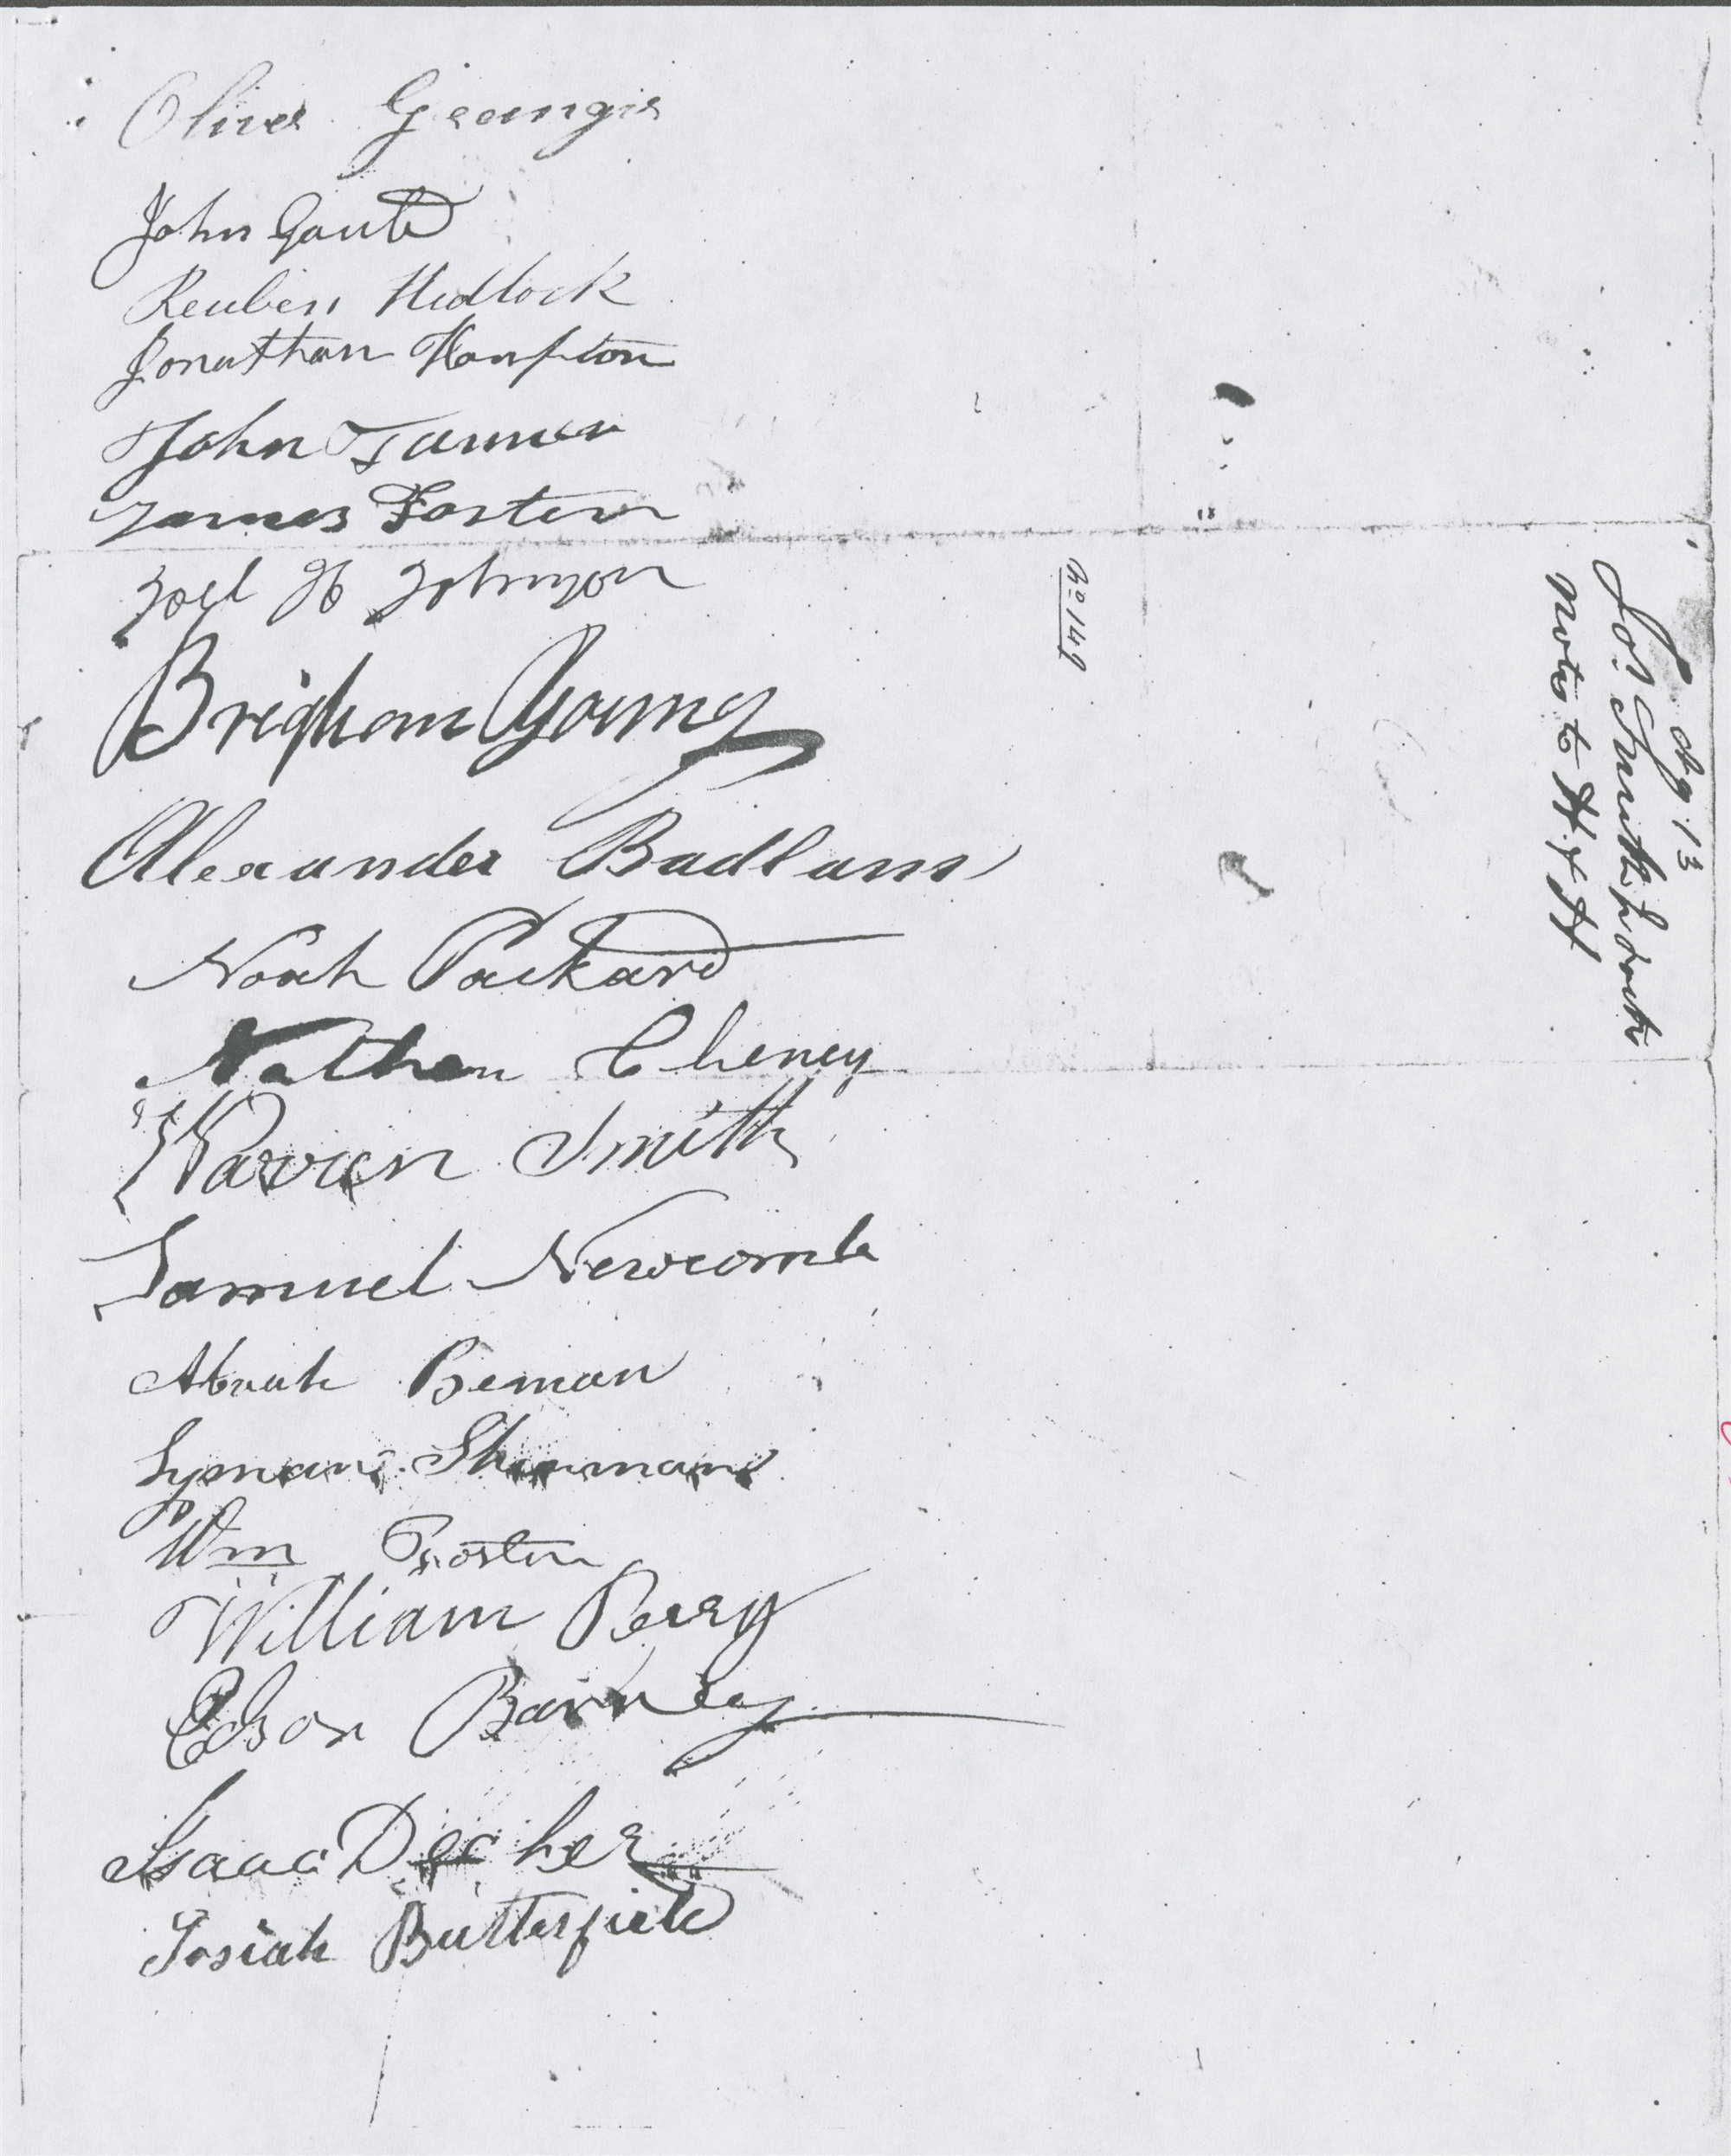 Oliver Grainger
John Gould
Reuben Hedlock
Jonathan Hampton
John Tanner
James Foster
Joel H Johnson
Brigham Young
Alexander Badlam
Noah Packard
Nathan Cheney
Warren Smith
Samuel Newcomb
Alvah Beman
Lyman Sherman
Wm Foster
William Perry
Edson Barney
Isaac Decker
Josiah Butterfield
No 149
13
Jos. Smith
Note to H & H